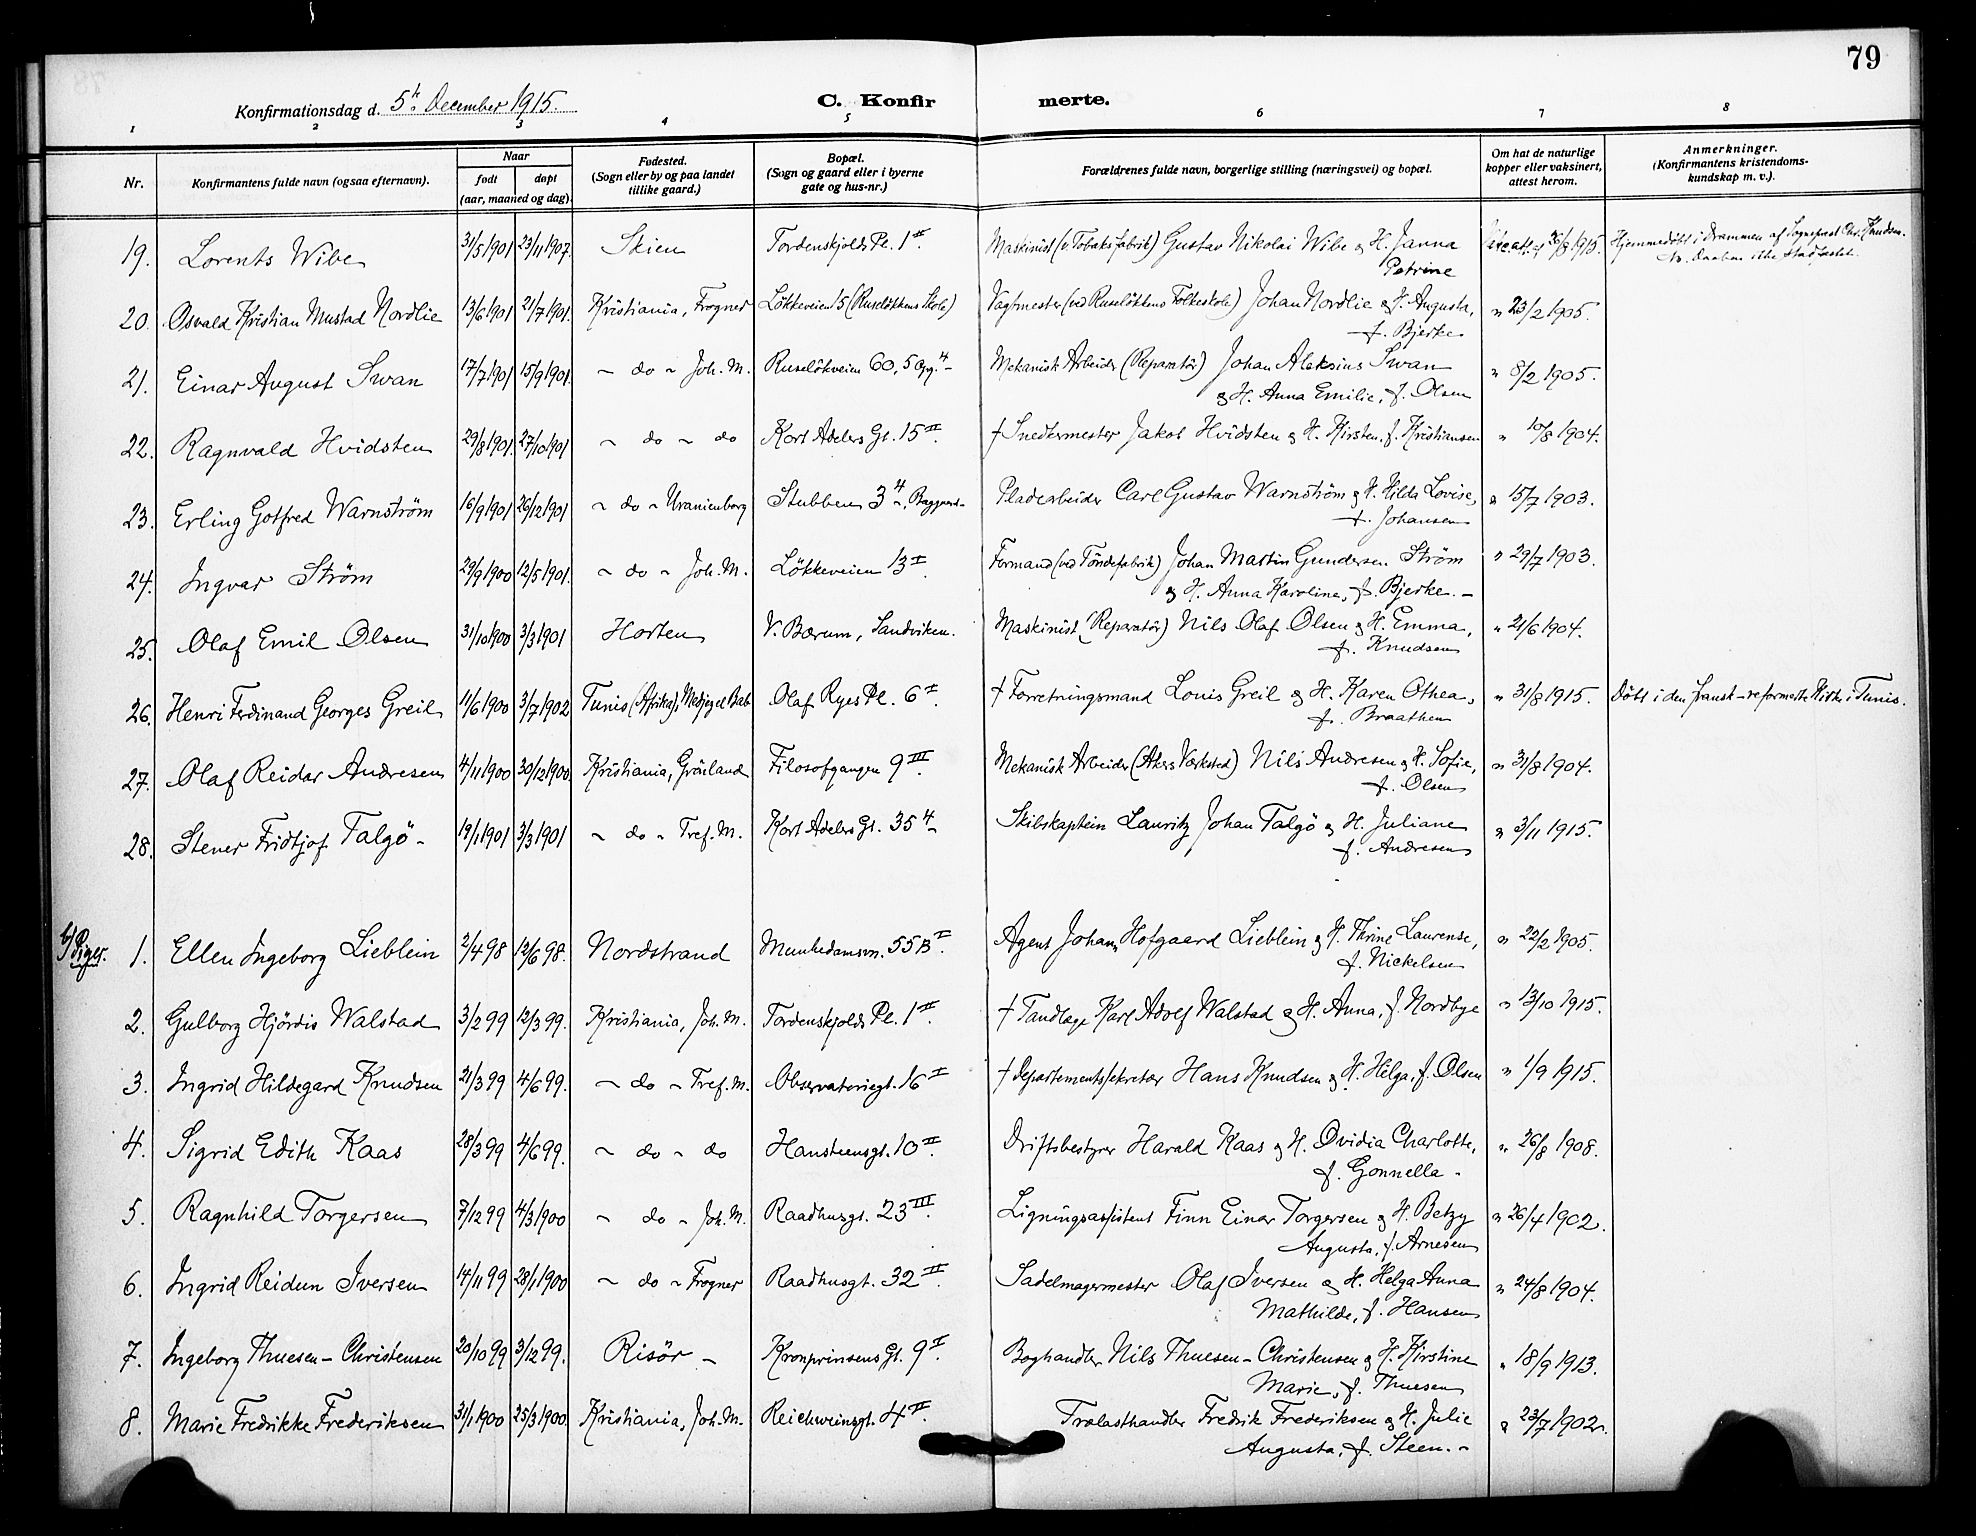 79
Konfirmationsdag d. 5te December 1915.
C. Konfirmerte.
1 2 3 4 5 6 7 8
Nr. Konfirmantens fulde navn (ogsaa efternavn). Naar født døpt (aar, maaned og dag). Fødested. (Sogn eller by og paa landet tillike gaard.) Bopæl. (Sogn og gaard eller i byerne gate og hus-nr.) Forældrenes fulde navn, borgerlige stilling (næringsvei) og bopæl. Om hat de naturlige kopper eller vaksinert, attest herom. Anmerkninger. (Konfirmantens kristendoms-kundskap m. v.).
19. Lorents Wibe 31/5 1901 23/11 1907. Skien Tordenskjolds Pl. 1 II. Maskinist (v. Tobaksfabrik) Gustav Nikolai Wibe & H. Janna 26/8 1915. Hjemmedöbt i Drammen af Sogneprest Chr. Knudsen.
Petrine
20. Osvald Kristian Mustad Nordlie 13/6 1901 21/7 1901. Kristiania, Frogner Lökkeveien 15 (Ruselökkens Skole) Vagtmester (ved Ruselökkens Folkeskole) Johan Nordlie & H. Augusta, " 23/2 1905.
f. Bjerke
21. Einar August Swan 17/7 1901 15/9 1901. " do " Joh. M. Ruselökveien 60, 5 Opg. 4 Mekanisk Arbeider (Reparatör) Johan Aleksius Swan " 8/2 1905.
& H. Anna Emilie, f. Olsen
22. Ragnvald Hvidsten 29/8 1901. 27/10 1901 " do " do Kort Adelers Gt. 15 II. † Snedkermester Jakob Hvidsten & H. Kirsten, f. Kristiansen " 10/8 1904.
23. Erling Gotfred Warnström 16/9 1901 26/12 1901 " do " Uranienborg Stubben 3 4, Baggaard Pladearbeider Carl Gustav Warnström & H. Hilda Lovise, " 15/7 1903.
f. Johansen
24. Ingvar Ström 29/9 1900 12/5 1901. " do " Joh. M. Lökkeveien 13 I. Formand (ved Töndefabrik) Johan Martin Gundersen Ström " 29/7 1903.
& H. Anna Karoline, f. Bjerke.
25. Olaf Emil Olsen 31/10 1900 3/3 1901 Horten V. Bærum, Sandviken. Maskinist (Reparatör) Nils Olaf Olsen & H. Emma, " 21/6 1904.
f. Knudsen
26. Henri Ferdinand Georges Greil 11/6 1900 3/7 1902 Tunis (Afrika), Medjez el Bab Olaf Ryes Pl. 6 I. † Forretningsmand Louis Greil & H. Karen Othea, " 31/8 1915. Döbt i den fransk-reformerte Kirke i Tunis.
f. Braathen
27. Olaf Reidar Andresen 4/11 1900 30/12 1900 Kristiania, Grönland Filosofgangen 9 III. Mekanisk Arbeider (Akers Værksted) Nils Andresen & H. Sofie, " 31/8 1904.
f. Olsen
28. Stener Fridtjof Talgö 19/1 1901 3/3 1901 " do " Tref. M. Kort Adelers Gt. 35 4 Skibskaptein Lauritz Johan Talgö & H. Juliane " 3/11 1915.
f. Andresen
b) Piger.
1. Ellen Ingeborg Lieblein 2/4 98 12/6 98. Nordstrand Munkedamsvn. 55B I. Agent Johan Hofgaard Lieblein & H. Thrine Laurense, " 22/2 1905.
f. Nickelsen
2. Gulborg Hjördis Walstad 3/2 99 12/3 99. Kristiania, Joh. M. Tordenskjolds Pl. 1 II. † Tandlæge Karl Adolf Walstad & H. Anna, f. Nordbye " 13/10 1915.
3. Ingrid Hildegard Knudsen 21/3 99 4/6 99. " do " Tref. M. Observatoriegt. 16 I † Departementssekretær Hans Knudsen & H. Helga, f. Olsen " 1/9 1915.
4. Sigrid Edith Kaas 28/3 99 4/6 99. " do " do Hansteensgt. 10 II. Driftsbestyrer Harald Kaas & H. Ovidia Charlotte, " 26/8 1908.
f. Gonnella
5. Ragnhild Torgersen 7/12 99 4/3 1900 " do " Joh. M. Raadhusgt. 23 III. Ligningsassistent Finn Einar Torgersen & H. Betzy " 26/4 1902.
Augusta, f. Arnesen
6. Ingrid Reidun Iversen 14/11 99 28/1 1900 " do " Frogner Raadhusgt. 32 II. Sadelmagermester Olaf Iversen & H. Helga Anna " 24/8 1904.
Mathilde, f. Hansen
7. Ingeborg Thuesen-Christensen 20/10 99 3/12 99. Risör Kronprinsens Gt. 9 I. Boghandler Nils Thuesen-Christensen & H. Kirstine " 18/9 1913.
Marie, f. Thuesen
8. Marie Fredrikke Frederiksen 31/1 1900 25/3 1900. Kristiania, Joh. M. Reichweinsgt. 4 II. Trælasthandler Fredrik Frederiksen & H. Julie " 23/7 1902.
Augusta, f. Steen.